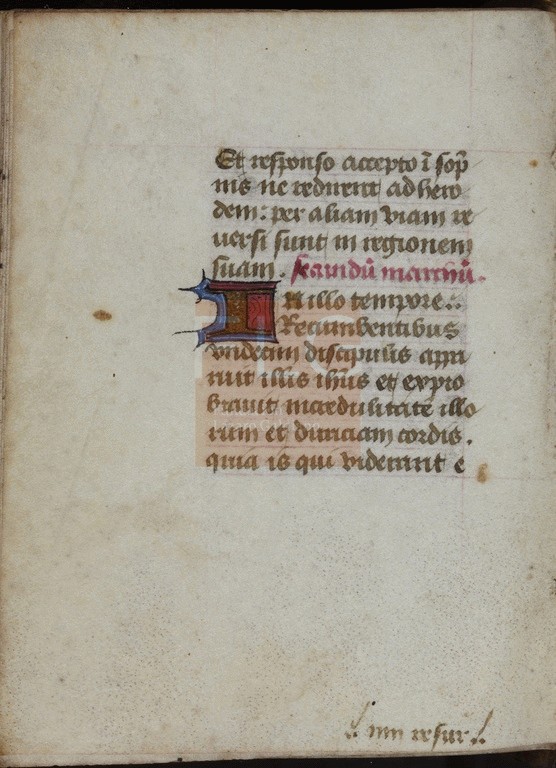 Et responso accepto ī sop̄
nis ne redirent ad hero
dem: per aliam viam re
uersi sunt in regionem
suam. secundū marchū.
IN illo tempore:.
Recumbentibus
vndecim discipulis appa
ruit illis ihūs et expro
brauit incredulitatē illo
rum et duriciam cordis.
quia is qui viderant e
um resur